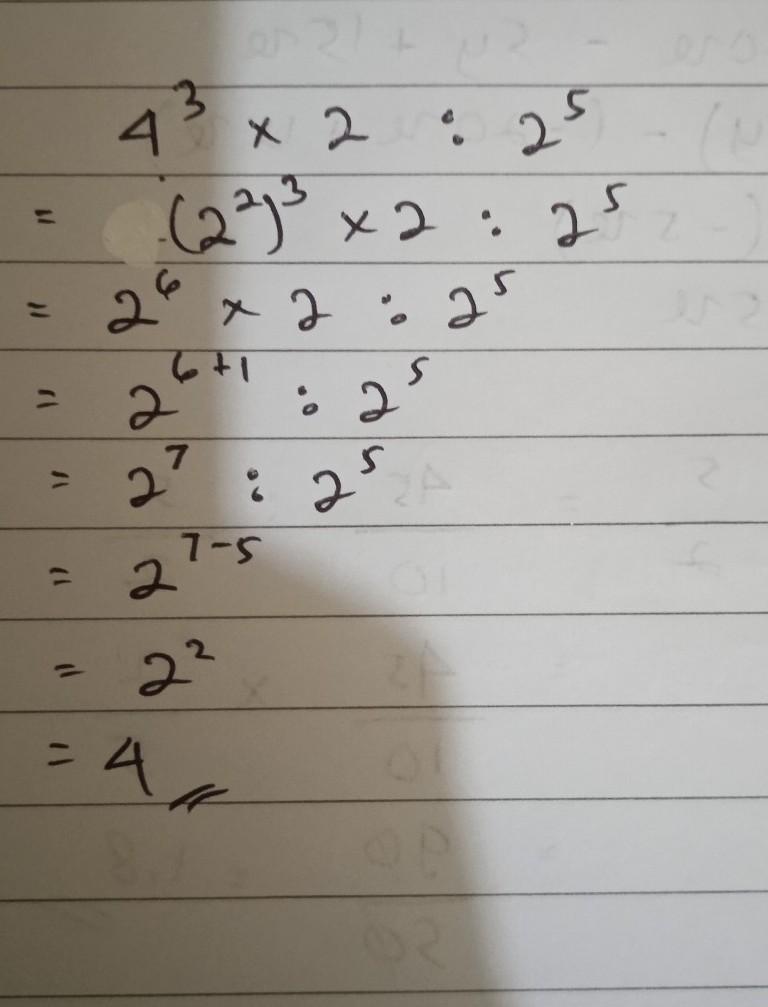 4³ × 2 : 2⁵
= (2²)³ × 2 : 2⁵
= 2⁶ × 2 : 2⁵
= 2⁶⁺¹ : 2⁵
= 2⁷ : 2⁵
= 2⁷⁻⁵
= 2²
= 4